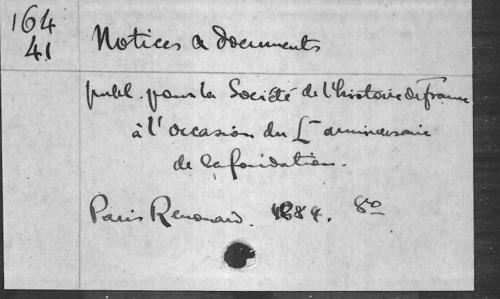 164
41
Notices & documents
publ. pour la Société de l'histoire de France
à l'occasion du Lme anniversaire
de la fondation.
Paris Renouard. 1884. 8o